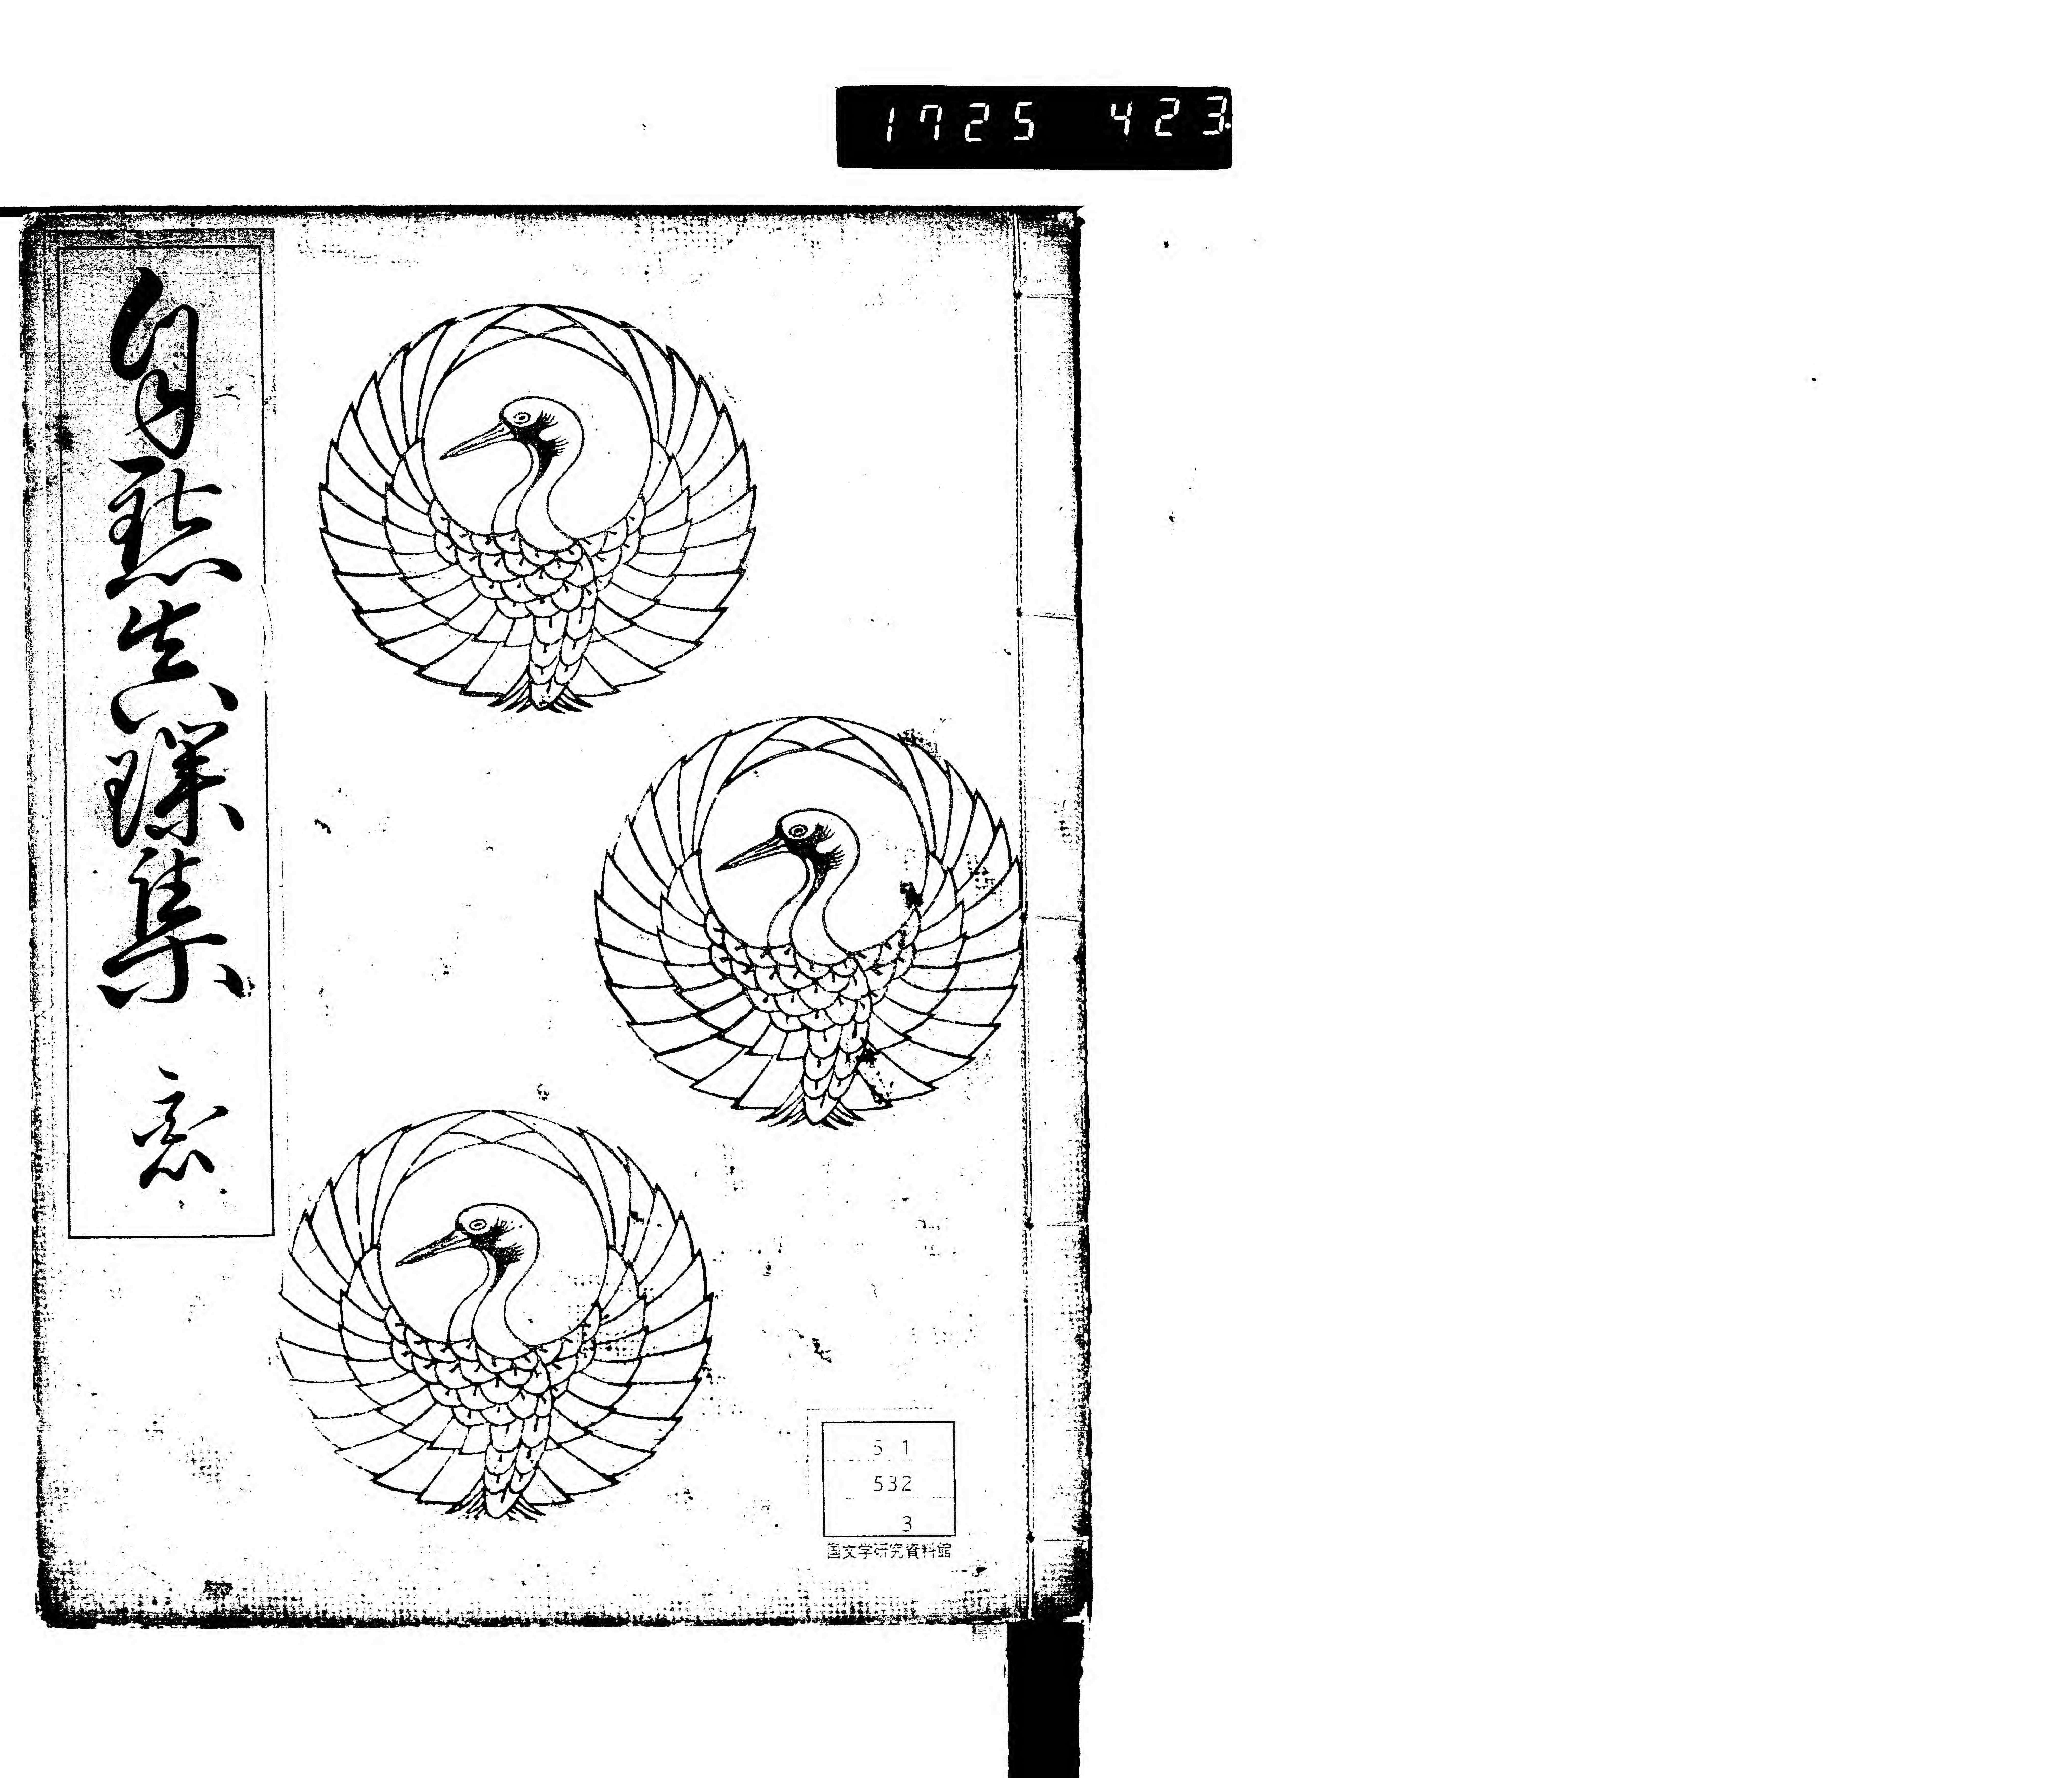 1725 423
自點真璞集 恋
51
532
3
国文学研究資料館